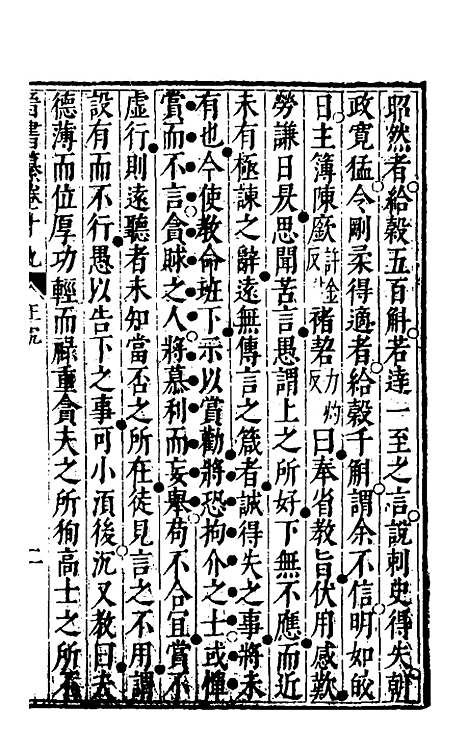 昭然者給穀五百斛若達一至之言說刺史得失朝
政寛猛令剛柔得適者給穀千斛謂余不信明如皎
日主簿陳廞許金反褚䂮力灼反曰奉省教旨伏用感歎
勞謙日昃思聞苦言愚謂上之所好下無不應而近
未有極諫之辭遠無傳言之箴者誠得失之事將未
有也今使教命班下示以賞勸將恐拘介之士或憚
賞而不言貪賕之人將慕利而妄舉苟不合宜賞不
虚行則遠聽者未知當否之所在徒見言之不用謂
設有而不行愚以告下之事可小湏後沉又教曰夫
德薄而位厚功輕而祿重貪夫之所徇高士之所不
晉書纂卷十九 王沉 二